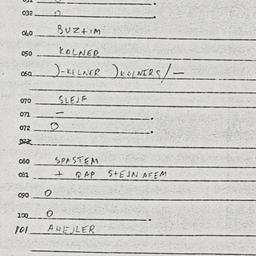 032 O .
040 BUZ+IM
050 KOLNER
060 )-KELNER )KOLNERS/-
070 SLEJF
071 - .
072 O .
080 SPASTEM
081 + QAP STEJNAFEM
090 O
100 O .
101 AHEJLER